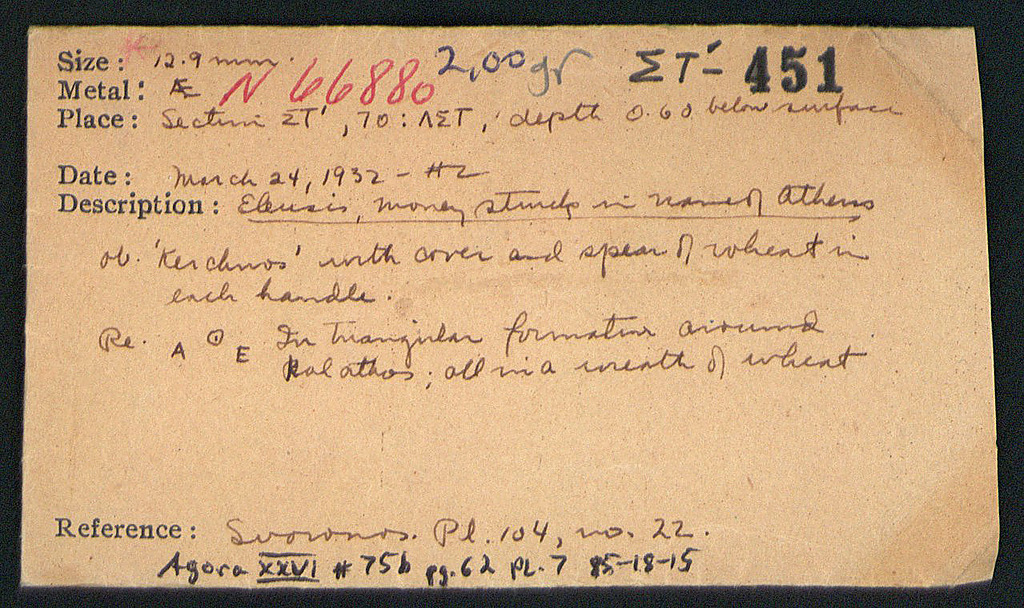 Size : 12.9 mm. 2,00 gr ΣΤ'- 451
Metal : Æ N 66880
Place : Section ΣΤ', 70 : ΛΣΤ, depth 0.60 below surface
Date : March 24, 1932 - #2
Description : Eleusis, money struck in name of Athens
ob. 'Kerchnos' with cover and spear of wheat in
each handle.
Re. Α Θ Ε In triangular formation around
kalathos; all in a wreath of wheat
Reference : Svoronos. Pl. 104, no. 22.
Agora XXVI # 75b pg. 62 PL. 7 85-18-15